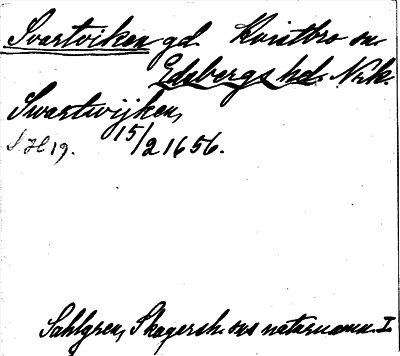 Svartviken gd. Kvistbro sn.
Edsbergs hd. Nrk.
Swartwijken,
15/2 1656.
S. H 19.
Sahlgren, Skagersh. sns naturnamn I